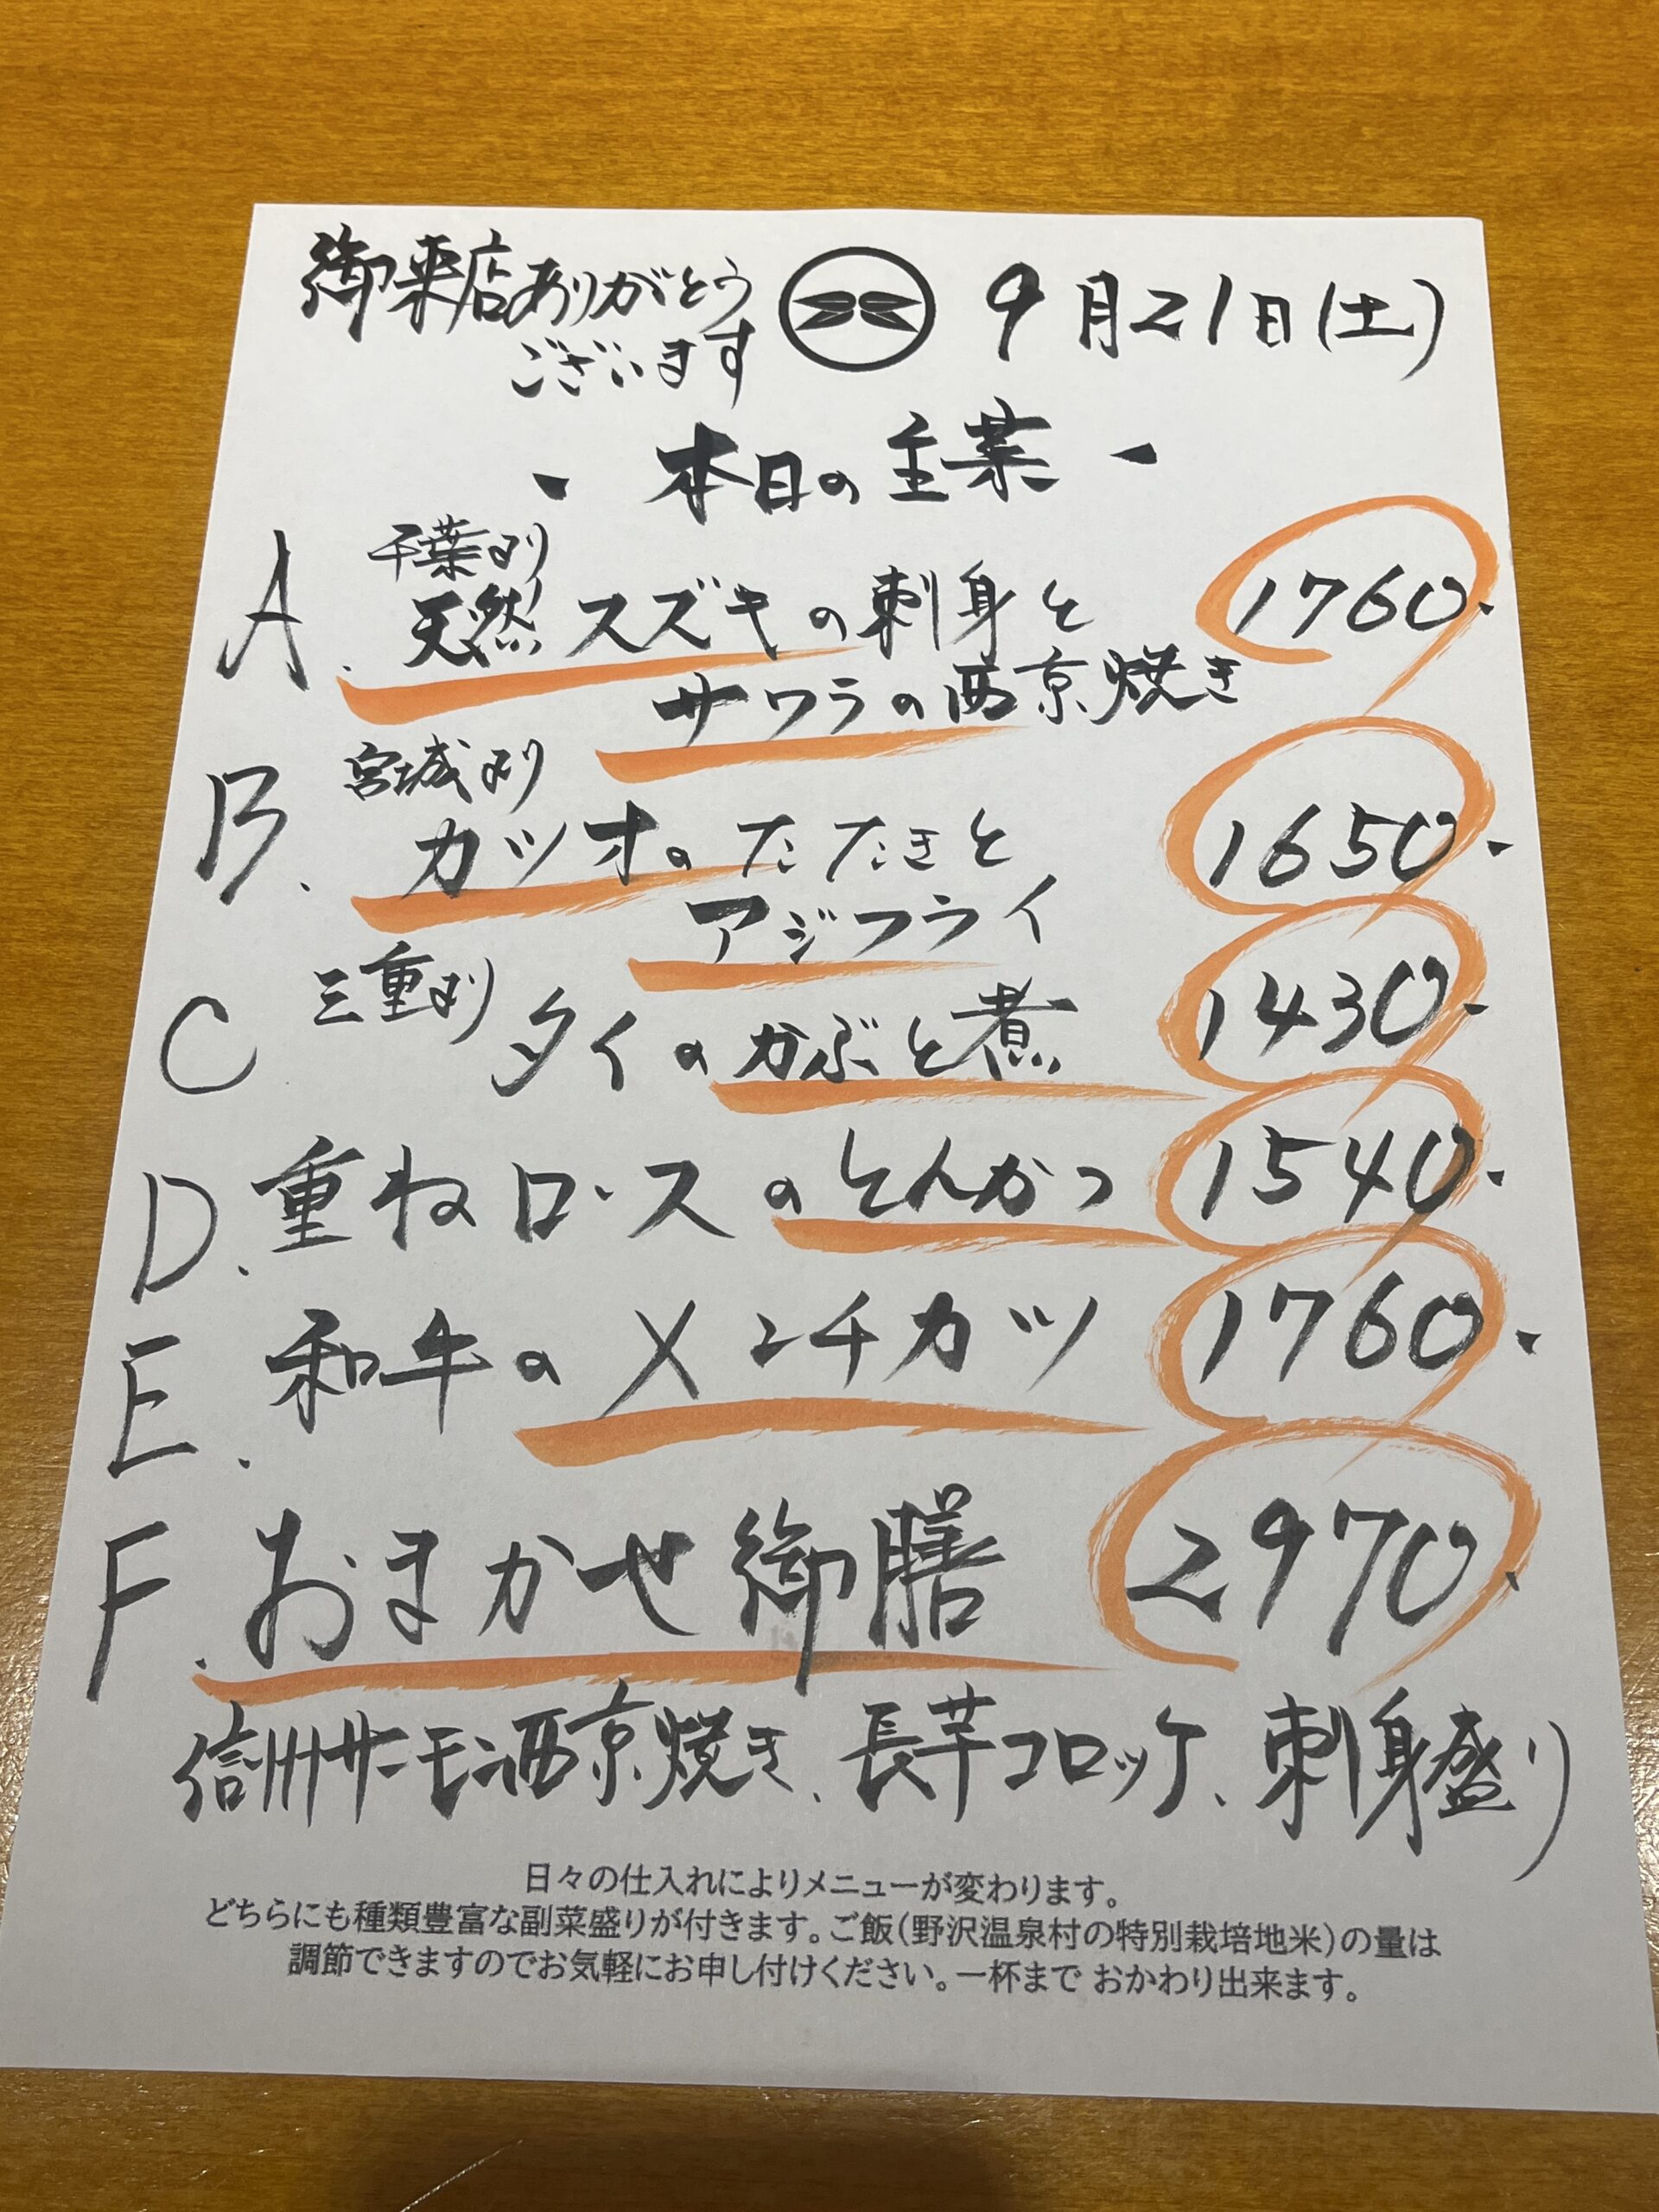 御来店ありがとう
ございます
9月21日(土)
- 本日の主菜 -
千葉より
A. 天然スズキの刺身と 1760.
サワラの西京焼き
宮城より
B. カツオのたたきと 1650.
アジフライ
C 三重より タイのかぶと煮 1430.
D. 重ねロースのとんかつ 1540.
E. 和牛のメンチカツ 1760.
F. おまかせ御膳 2970.
信州サーモン西京焼き、長芋コロッケ、刺身盛り
日々の仕入れによりメニューが変わります。
どちらにも種類豊富な副菜盛りが付きます。ご飯(野沢温泉村の特別栽培地米)の量は
調節できますのでお気軽にお申し付けください。一杯まで おかわり出来ます。